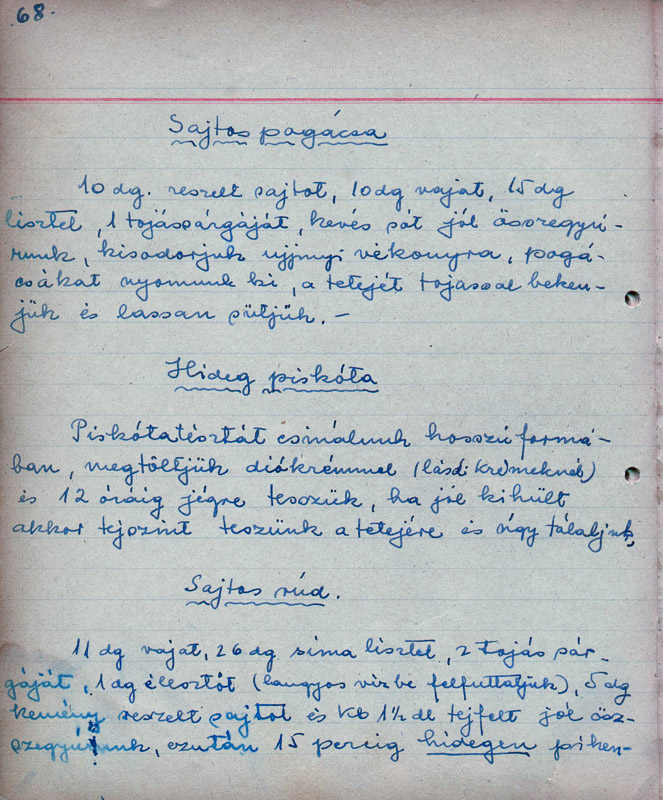 68.
Sajtos pogácsa
10 dg. reszelt sajtot, 10dg vajat, 15 dg
lisztet, 1 tojássárgáját, kevés sót jól összegyú-
runk, kisodorjuk ujjnyi vékonyra, pogá-
csákat nyomunk ki, a tetejét tojással beken-
jük és lassan sütjük. —
Hideg piskóta
Piskótatésztát csinálunk hosszú formá-
ban, megtöltjük diókrémmel (lásd: krémeknél)
és 12 óráig jégre tesszük, ha jól kihült
akkor tejszint teszünk a tetejére és úgy tálaljuk,
Sajtos rúd.
11 dg vajat, 26 dg sima lisztet, 2 tojás sár-
gáját, 1 dg élesztőt (langyos vízbe felfuttatjuk), 5 dg
kemény reszelt sajtot és kb 1½ dl tejfelt jól ösz-
szegyúrunk, ezután 15 percig hidegen pihen-